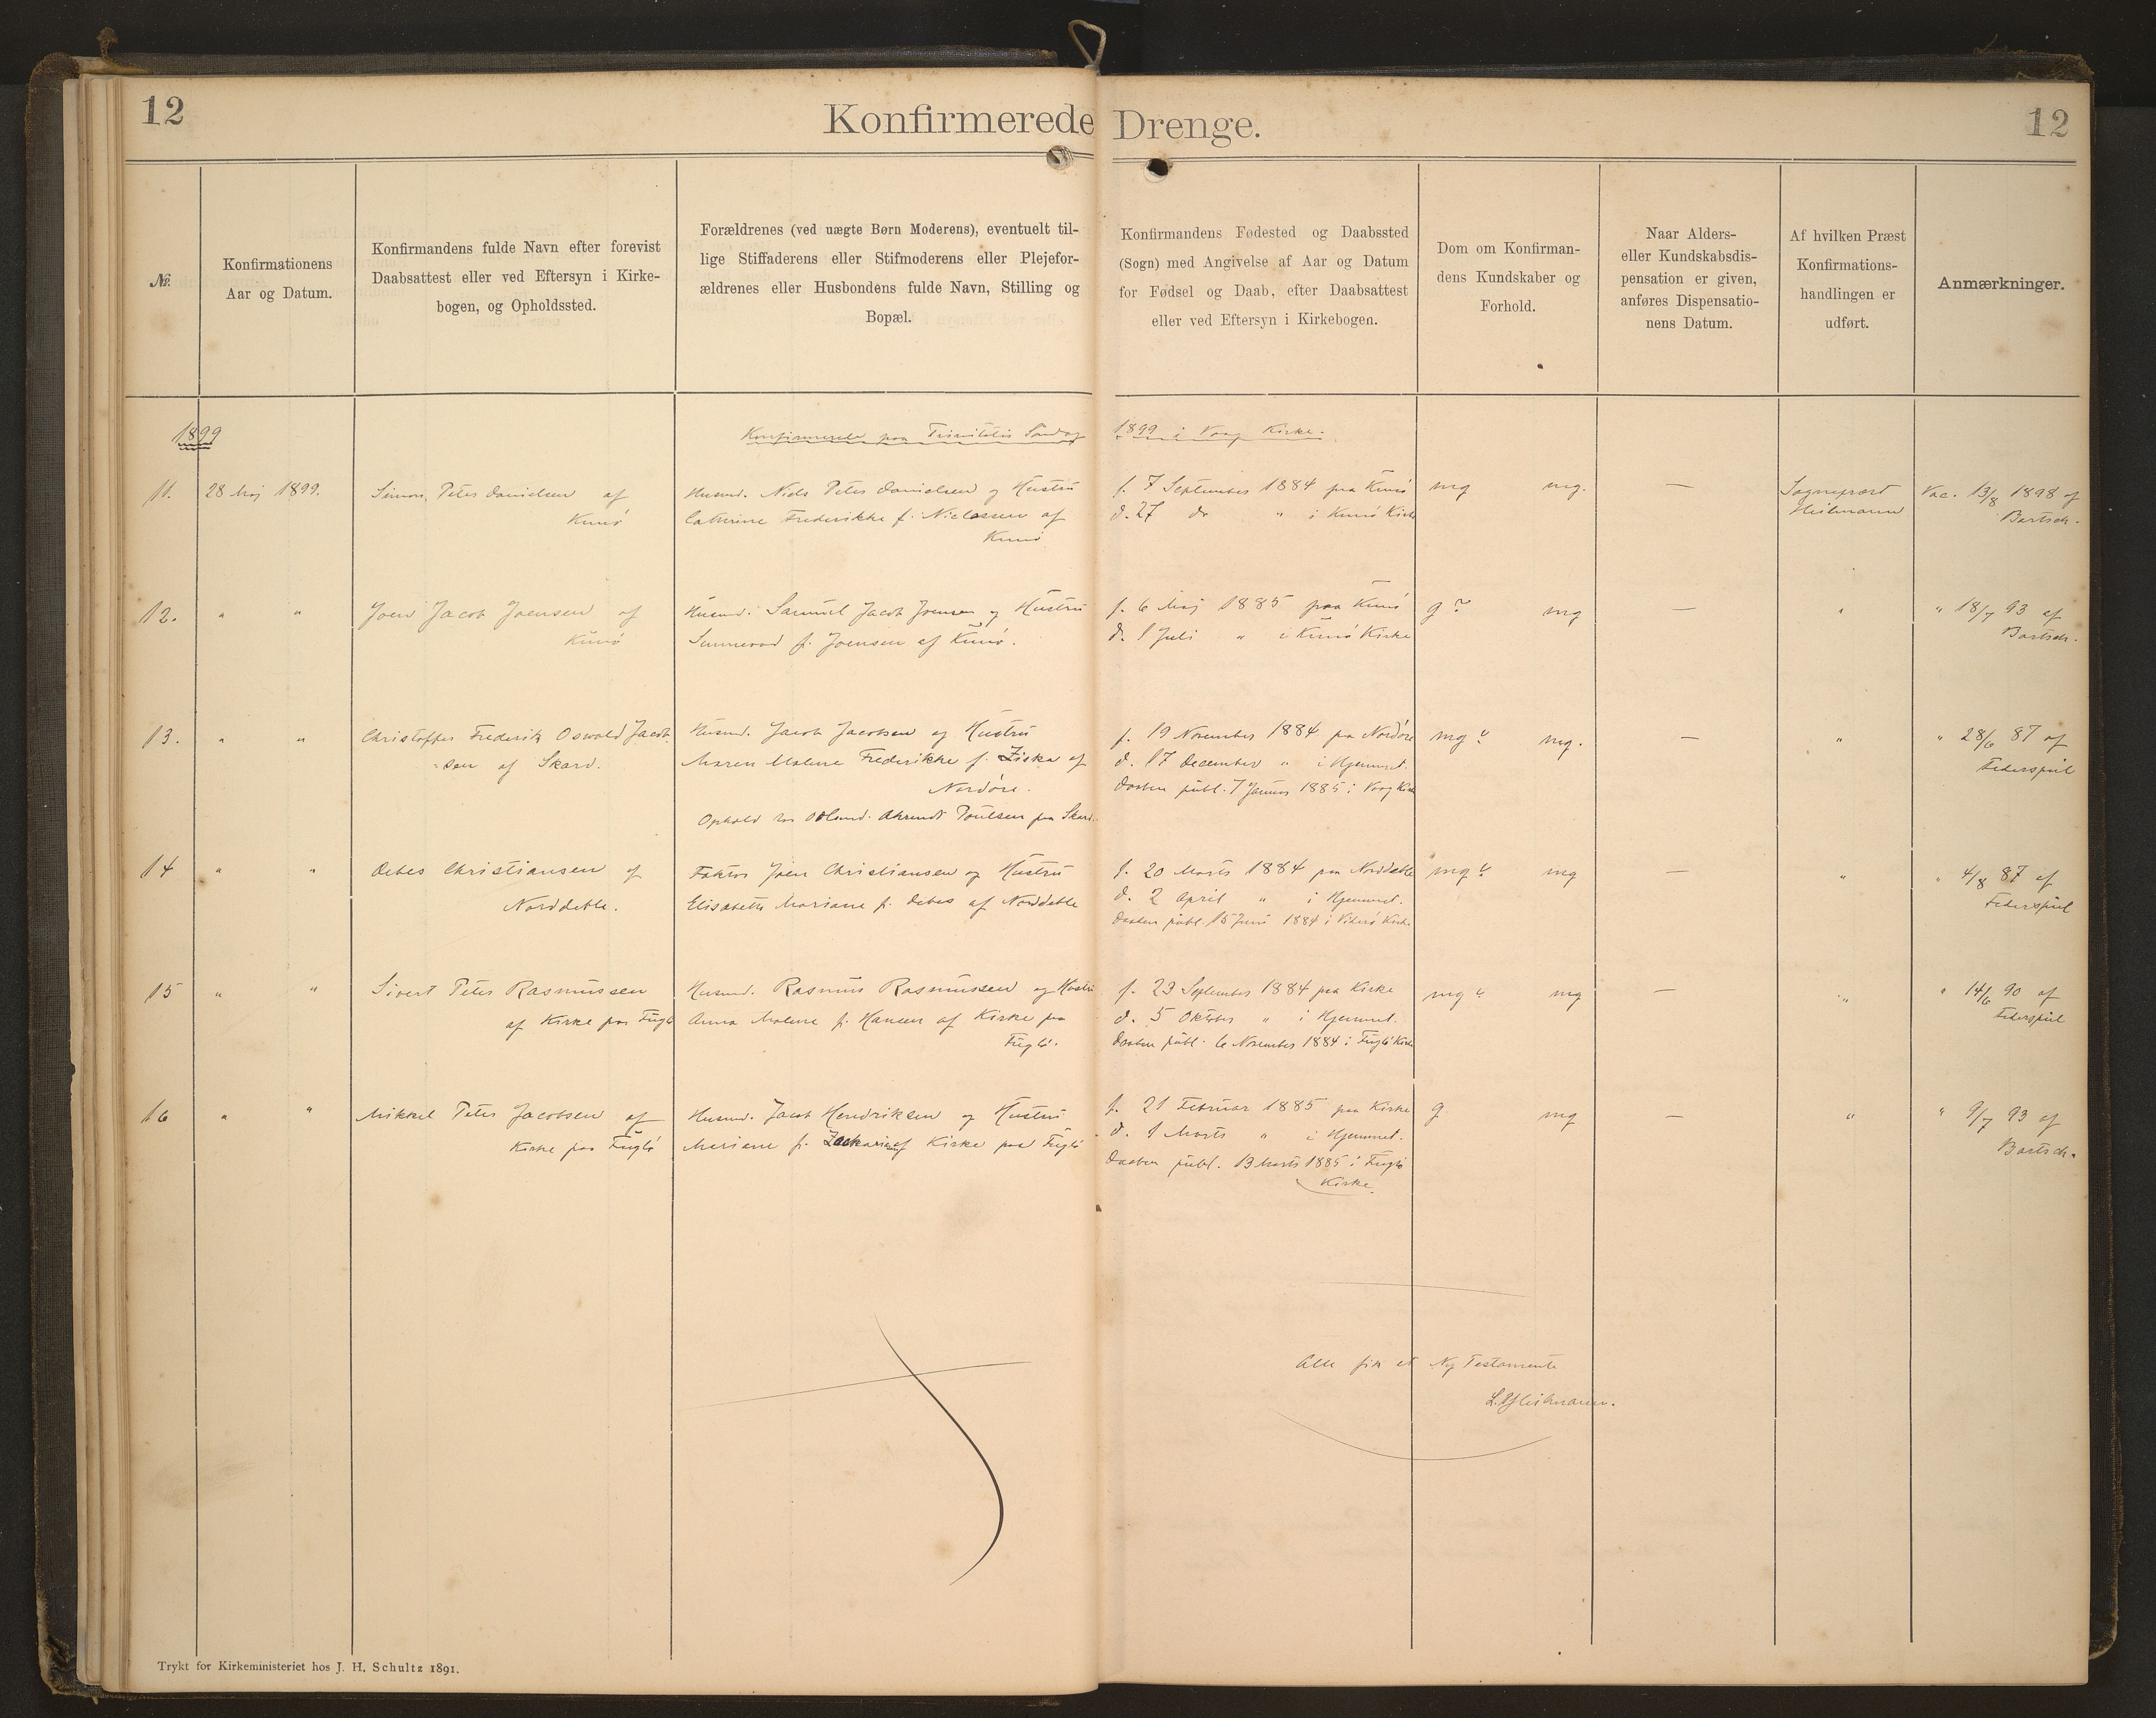 12
Konfirmerede Drenge.
12
№.
Konfirmationens
Aar og Datum.
Konfirmandens fulde Navn efter forevist
Daabsattest eller ved Eftersyn i Kirke-
bogen, og Opholdssted.
Forældrenes (ved uægte Børn Moderens), eventuelt til-
lige Stiffaderens eller Stifmoderens eller Plejefor-
ældrenes eller Husbondens fulde Navn, Stilling og
Bopæl.
Konfirmandens Fødested og Daabssted
(Sogn) med Angivelse af Aar og Datum
for Fødsel og Daab, efter Daabsattest
eller ved Eftersyn i Kirkebogen.
Dom om Konfirman-
dens Kundskaber og
Forhold.
Naar Alders-
eller Kundskabsdis-
pensation er given,
anføres Dispensatio-
nens Datum.
Af hvilken Præst
Konfirmations-
handlingen er
udført.
Anmærkninger.
1899
Konfirmerede paa Trinitatis Søndag 1899 i Vaag Kirke.
11.
28 Maj 1899.
Simon Peter Danielsen af
Kunø
Husmd. Niels Peter Danielsen og Hustru
Cathrine Frederikke f. Nielssen af
Kunø
f. 7 September 1884 paa Kunø
d. 27 do " i Kunø Kirke
mg mg.
—
Sognepræst
Heilmann
Vac. 13/8 1898 af
Bartsch.
12.
" "
Joen Jacob Joensen af
Kunø
Husmd. Samuel Jacob Joensen og Hustru
Sunnevad f. Joensen af Kunø.
f. 6 Maj 1885 paa Kunø
d. 1 Juli " i Kunø Kirke
g? mg
—
"
" 18/7 93 af
Bartsch.
13.
" "
Christoffer Frederik Oswald Jacob-
sen af Skard.
Husmd. Jacob Jacobsen og Hustru
Maren Malene Frederikke f. Ziska af
Nordøre.
Ophold hos Odelsmd. Ahrendt Poulsen paa Skard.
f. 19 November 1884 paa Nordøre
d. 17 December " i Hjemmet.
Daaben publ. 7 Januar 1885 i Vaag Kirke
mg mg.
—
"
" 28/6 87 af
Federspiel
14
" "
Debes Christiansen af
Norddeble.
Faktor Joen Christiansen og Hustru
Elisabeth Mariane f. Debes af Norddeble
f. 20 Marts 1884 paa Norddeble
d. 2 April " i Hjemmet.
Daaben publ. 15 Juni 1884 i Viderø Kirke
mg mg
—
"
" 4/8 87 af
Federspiel
15
" "
Sivert Peter Rasmussen
af Kirke paa Fuglø
Husmd. Rasmus Rasmussen og Hustru
Anna Malene f. Hansen af Kirke paa
Fuglø.
f. 23 September 1884 paa Kirke
d. 5 Oktober " i Hjemmet.
Daaben publ. 6 November 1884 i Fuglø Kirke
mg mg
—
"
" 14/6 90 af
Federspiel
16
" "
Mikkel Peter Jacobsen af
Kirke paa Fuglø
Husmd. Jacob Hendriksen og Hustru
Mariane f. Zachariasen af Kirke paa Fuglø
f. 21 Februar 1885 paa Kirke
d. 1 Marts " i Hjemmet.
Daaben publ. 13 Marts 1885 i Fuglø
Kirke.
g mg
—
"
" 9/7 93 af
Bartsch.
Alle fik et Ny Testamente
L. Heilmann.
Trykt for Kirkeministeriet hos J. H. Schultz 1891.